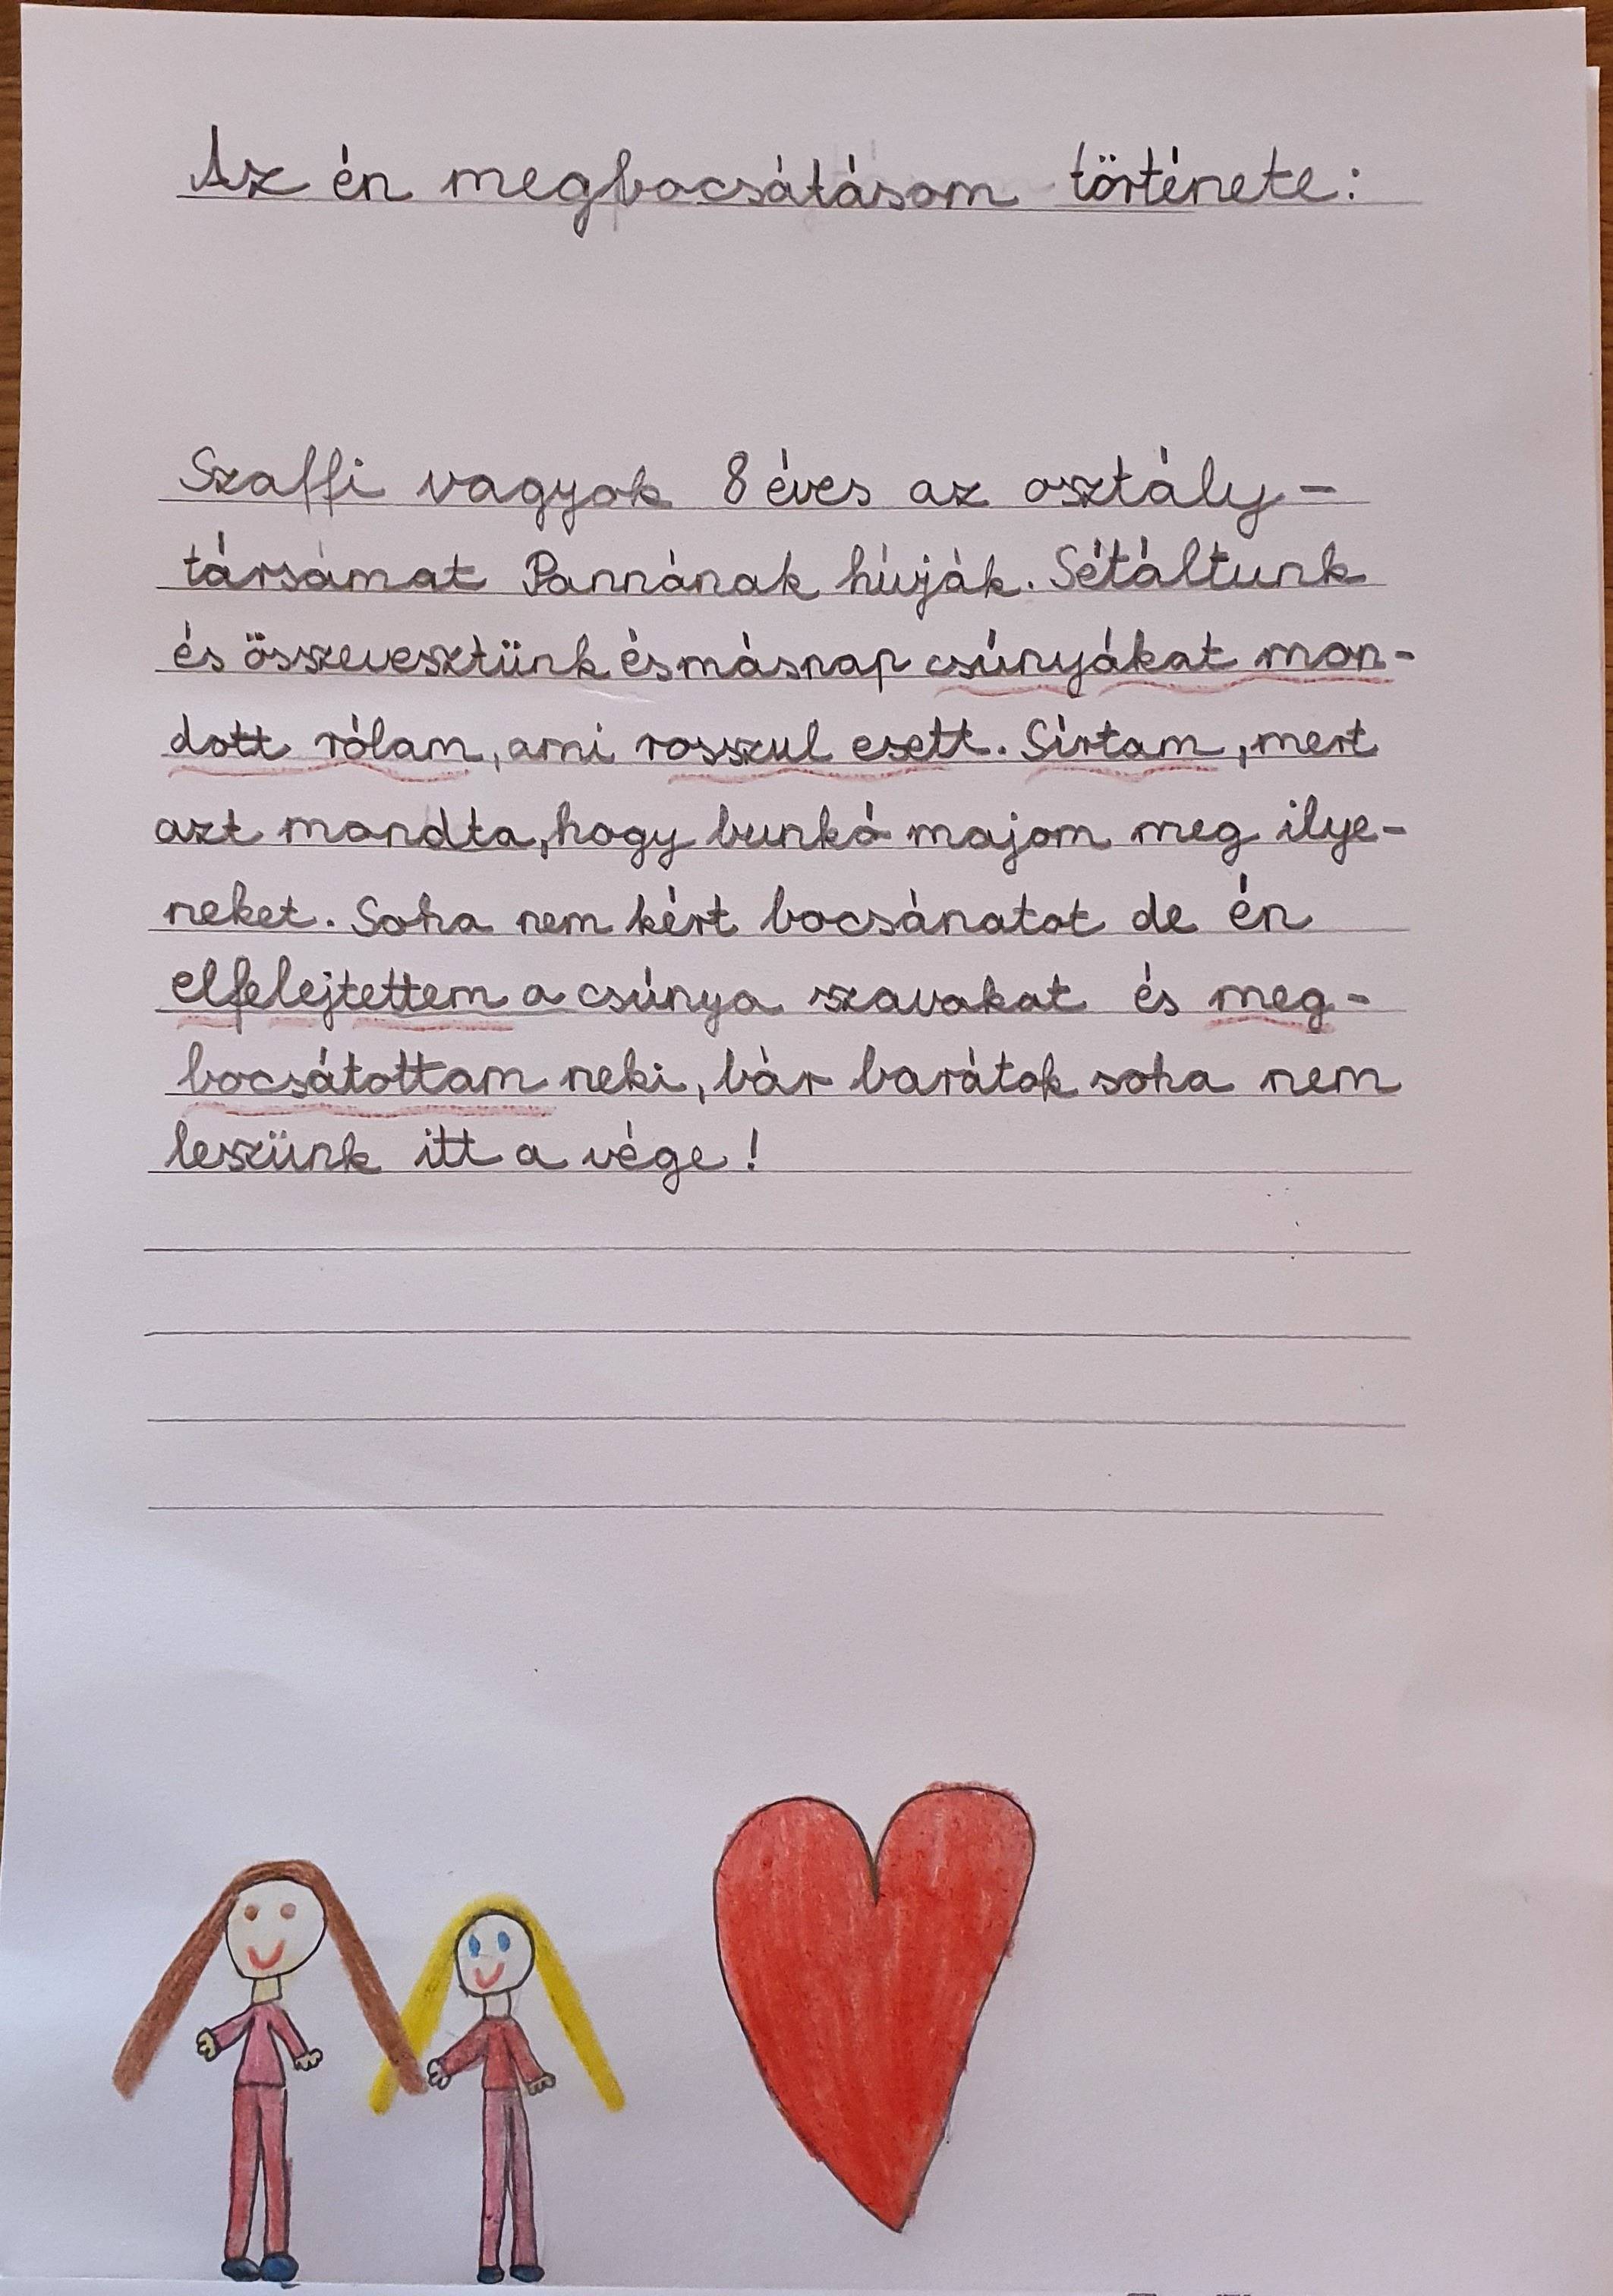 Az én megbocsátásom története:
Szaffi vagyok 8 éves az osztály-
társamat Pannának hívják. Sétáltunk
és összevesztünk és másnap csúnyákat mon-
dott rólam, ami rosszul esett. Sírtam, mert
azt mondta, hogy bunkó majom meg ilye-
neket. Soha nem kért bocsánatot de én
elfelejtettem a csúnya szavakat és meg-
bocsátottam neki, bár barátok soha nem
leszünk itt a vége!